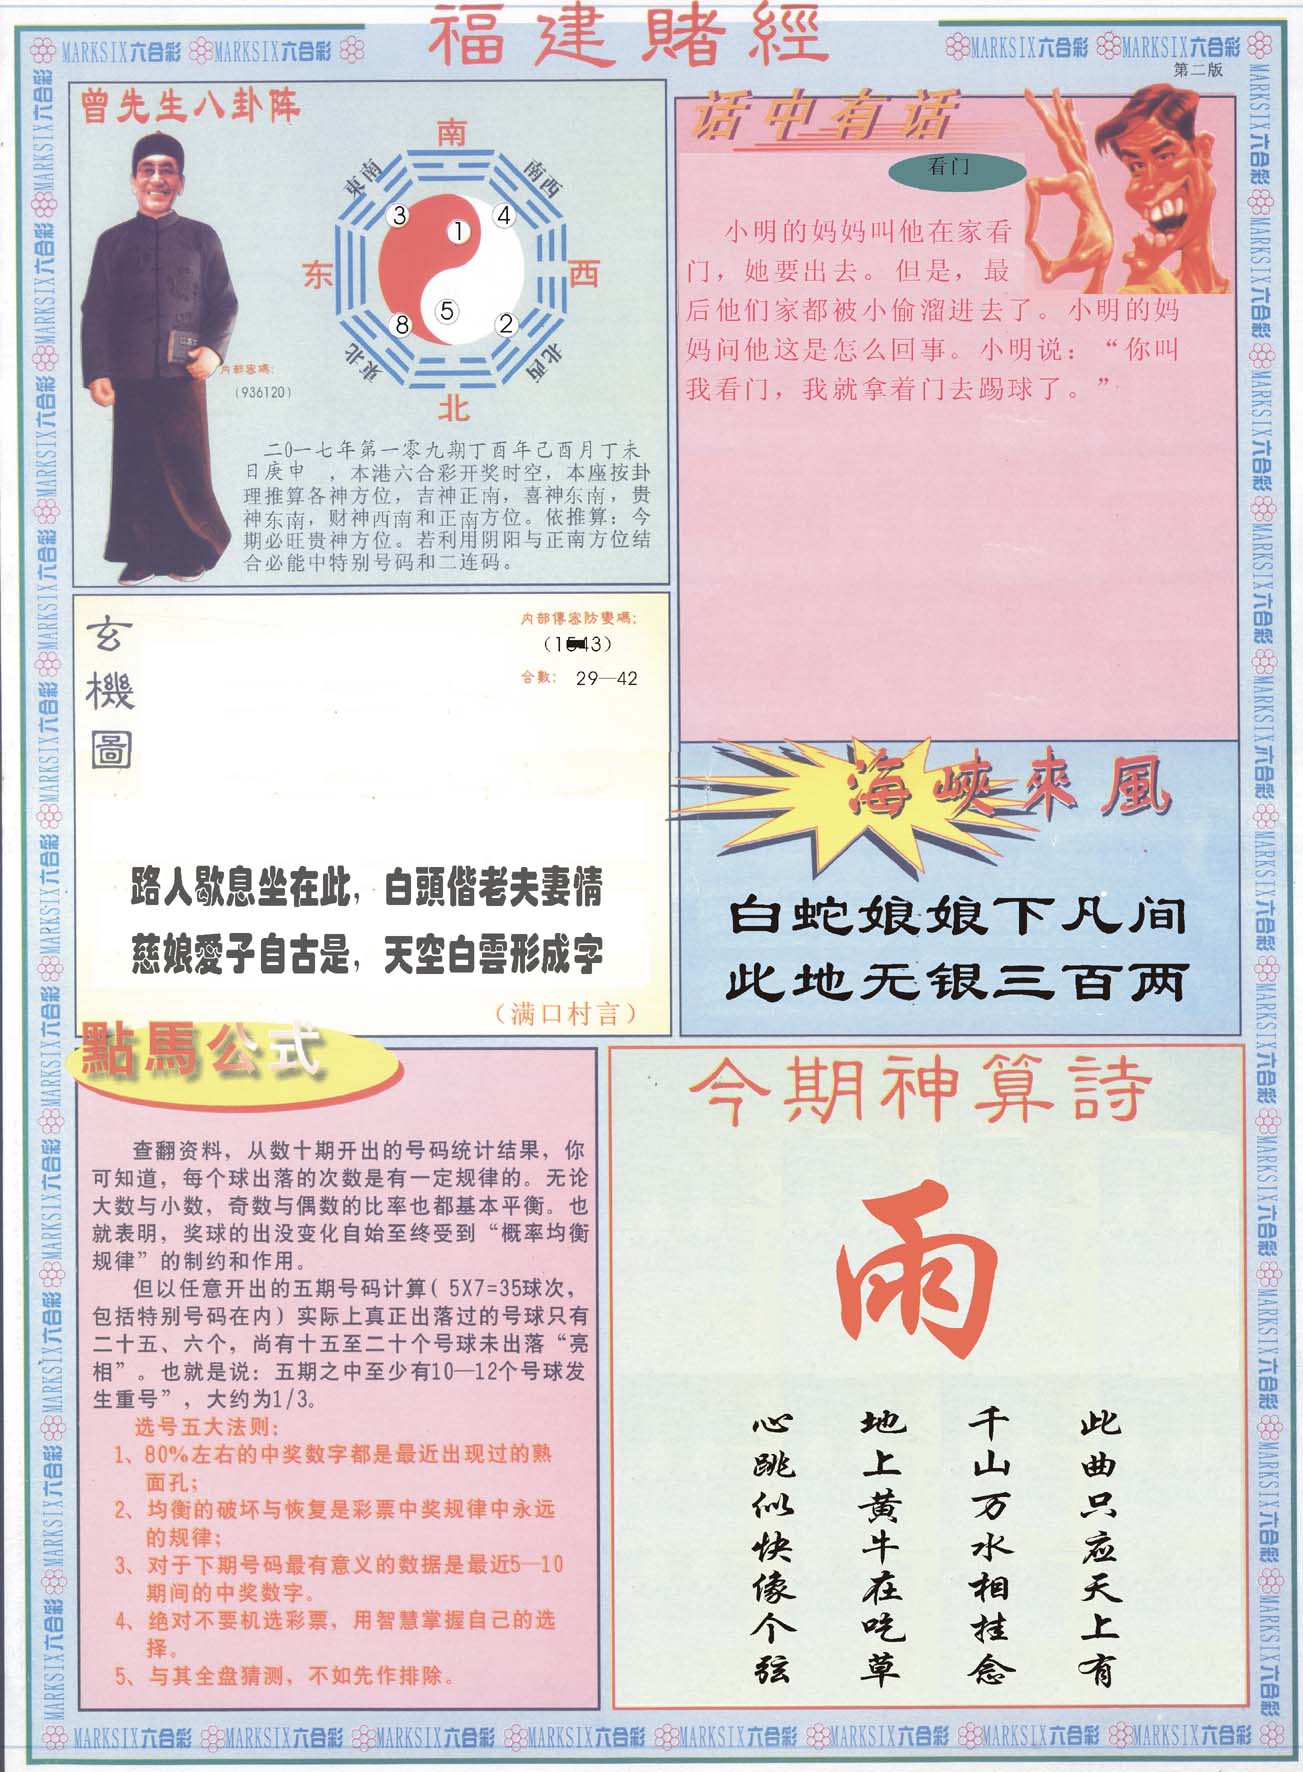 福建賭經
MARKSIX六合彩 MARKSIX六合彩
MARKSIX六合彩 MARKSIX六合彩
第二版
曾先生八卦阵
南
東南
南西
3
1
4
东
西
5
8
2
東北
北西
北
内部密碼:
(936120)
二0一七年第一零九期丁酉年己酉月丁未
日庚申 ,本港六合彩开奖时空,本座按卦
理推算各神方位,吉神正南,喜神东南,贵
神东南,财神西南和正南方位。依推算:今
期必旺贵神方位。若利用阴阳与正南方位结
合必能中特别号码和二连码。
话中有话
看门
小明的妈妈叫他在家看
门,她要出去。但是,最
后他们家都被小偷溜进去了。小明的妈
妈问他这是怎么回事。小明说:“你叫
我看门,我就拿着门去踢球了。”
玄機圖
内部傳密防變碼:
合數: 29—42
路人歇息坐在此,白頭偕老夫妻情
慈娘愛子自古是,天空白雲形成字
(满口村言)
海峽來風
白蛇娘娘下凡间
此地无银三百两
點馬公式
查翻资料,从数十期开出的号码统计结果,你
可知道,每个球出落的次数是有一定规律的。无论
大数与小数,奇数与偶数的比率也都基本平衡。也
就表明,奖球的出没变化自始至终受到“概率均衡
规律”的制约和作用。
但以任意开出的五期号码计算(5X7=35球次,
包括特别号码在内)实际上真正出落过的号球只有
二十五、六个,尚有十五至二十个号球未出落“亮
相”。也就是说:五期之中至少有10—12个号球发
生重号”,大约为1/3。
选号五大法则:
1、80%左右的中奖数字都是最近出现过的熟
面孔;
2、均衡的破坏与恢复是彩票中奖规律中永远
的规律;
3、对于下期号码最有意义的数据是最近5—10
期间的中奖数字。
4、绝对不要机选彩票,用智慧掌握自己的选
择。
5、与其全盘猜测,不如先作排除。
今期神算詩
雨
此曲只应天上有
千山万水相挂念
地上黄牛在吃草
心跳似快像个弦
MARKSIX六合彩 MARKSIX六合彩 MARKSIX六合彩 MARKSIX六合彩 MARKSIX六合彩 MARKSIX六合彩 MARKSIX六合彩 MARKSIX六合彩